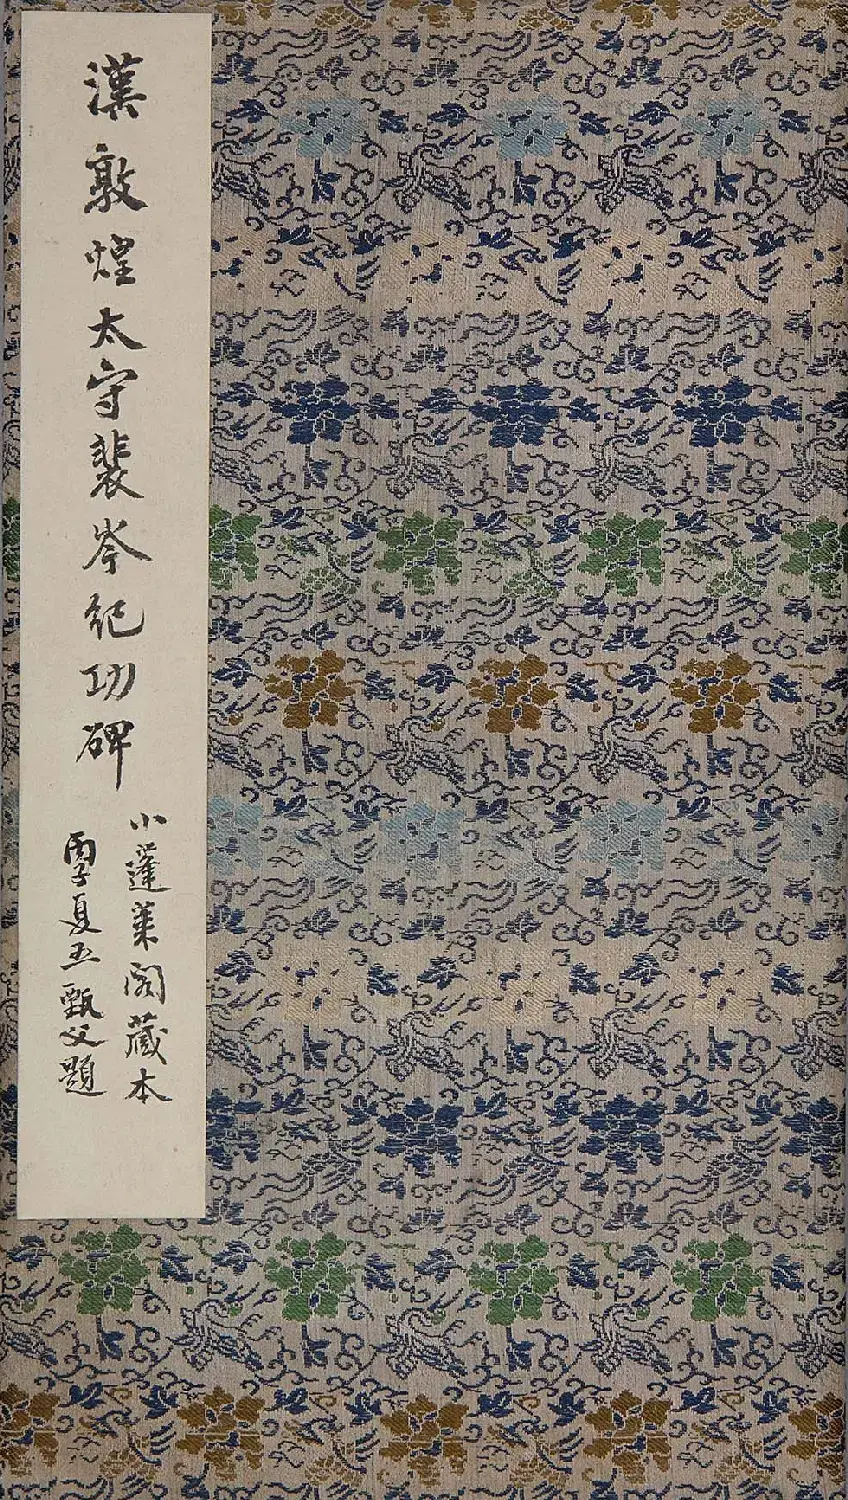 漢敦煌太守裴岑紀功碑
小蓬萊閣藏本
丙子夏五甄父題